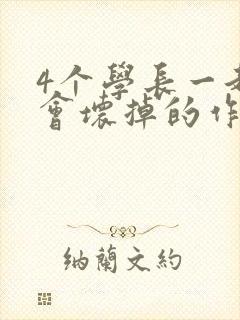 4个學長一
會壞掉的作
納蘭文約